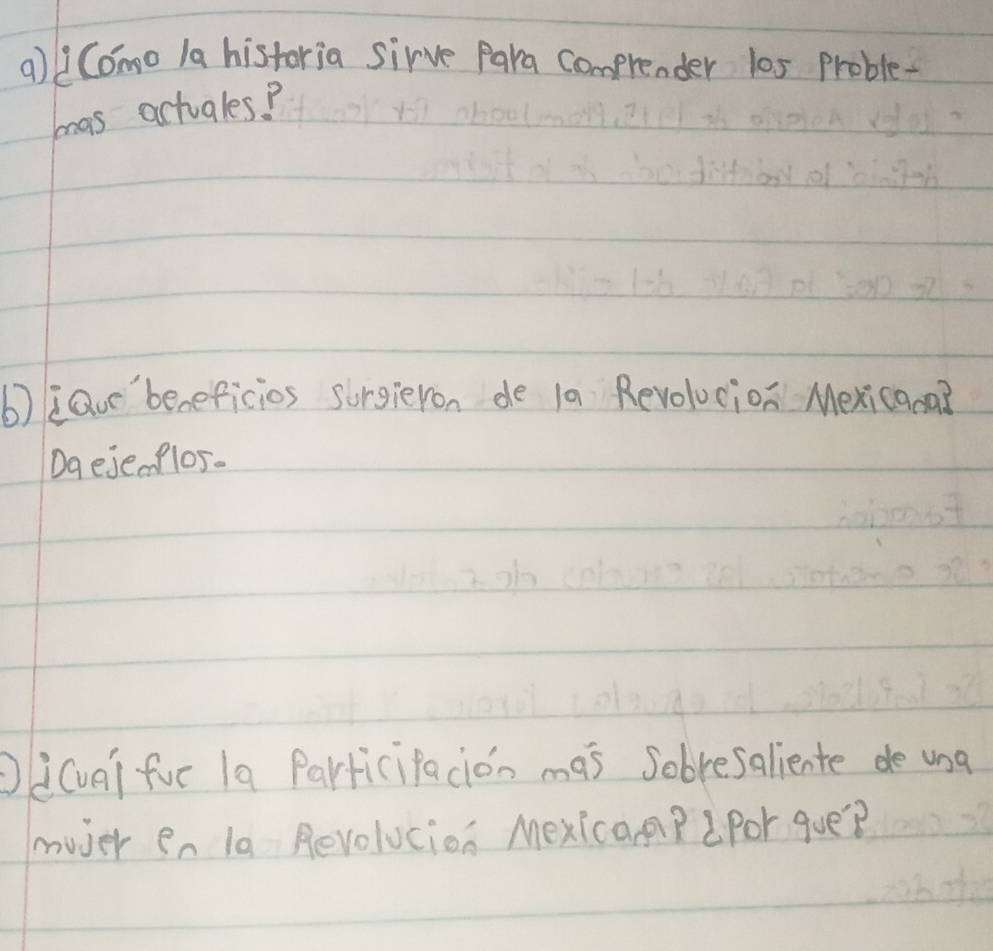 a) ¿Cómo la historia sirve para comprender los proble-
mas actuales?
b) ¿Qué beneficios surgieron de la Revolución Mexicana?
Da ejemplos.
¿Cuál fue la participación más sobresaliente de una
mujer en la Revolución Mexicana? ¿por qué?